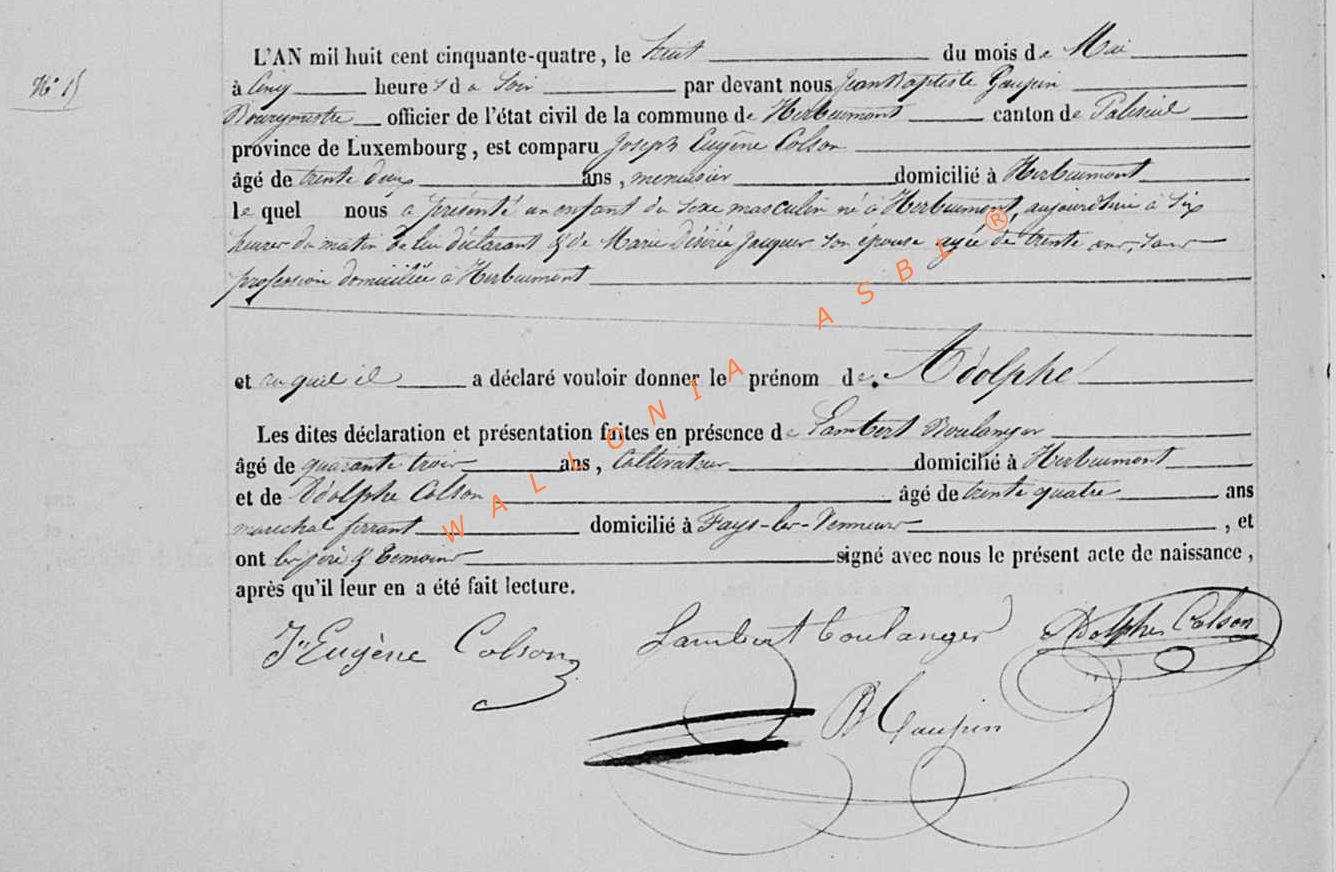 N° 15
L'AN mil huit cent cinquante-quatre, le huit du mois de Mai
à Cinq heures du Soir par devant nous Jean Baptiste Gaupin
Bourgmestre officier de l'état civil de la commune de Herbeumont canton de Paliseul
province de Luxembourg, est comparu Joseph Eugène Colson
âgé de trente deux ans, menuisier domicilié à Herbeumont
le quel nous a présenté un enfant du sexe masculin né à Herbeumont, aujourd'hui à six
heures du matin de lui déclarant & de Marie Désirée Jacques son épouse agée de trente ans, sans
profession domiciliée à Herbeumont
et auquel il a déclaré vouloir donner le prénom de. Adolphe
Les dites déclaration et présentation faites en présence de Lambert Boulanger
âgé de quarante trois ans, Cultivateur domicilié à Herbeumont
et de Adolphe Colson âgé de trente quatre ans
marechal ferrant domicilié à Fays-les-Veneurs, et
ont les père & temoins signé avec nous le présent acte de naissance,
après qu'il leur en a été fait lecture.
Jh Eugène Colson Lambert boulanger Adolphe Colson
JB Gaupin
WALLONIA ASBL ®